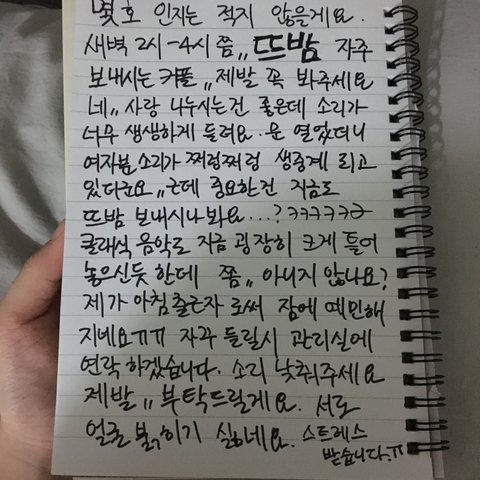 몇호 인지는 적지 않을게요.
새벽 2시-4시 쯤,, 뜨밤 자주
보내시는 커플,, 제발 꼭 봐주세요
네,, 사랑 나누시는건 좋은데 소리가
너무 생생하게 들려요. 문 열었더니
여자분 소리가 쩌렁쩌렁 생중계 되고
있다군요,, 근데 중요한건 지금도
뜨밤 보내시나봐요...? ㅋㅋㅋㅋㅋㅋ
클래식 음악도 지금 굉장히 크게 틀어
놓으신듯 한데 쫌,, 아니지 않나요?
제가 아침 출근자 로써 잠에 예민해
지네요ㅠㅠ 자꾸 들릴시 관리실에
연락 하겠습니다. 소리 낮춰주세요
제발,, 부탁드릴게요. 서로
얼굴 붉히기 싫네요. 스트레스
받습니다.ㅠ